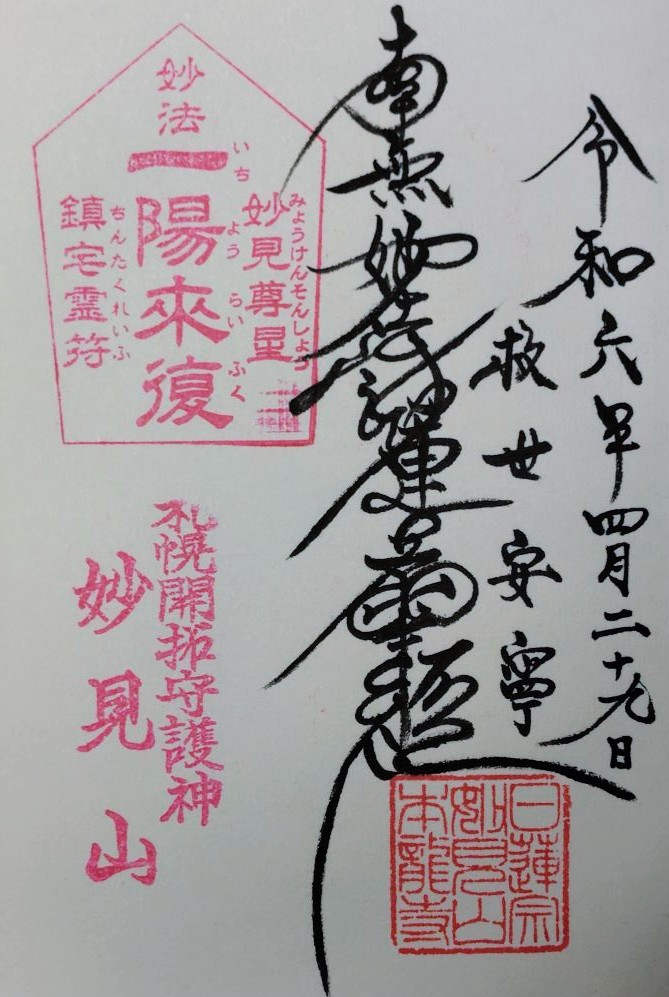 令和六年四月二十九日
救世安寧
南無妙法蓮華経
日蓮宗
妙見山
本龍寺
妙法
みょうけんそんしょう
妙見尊星
いちようらいふく
一陽來復
ちんたくれいふ
鎮宅霊符
札幌開拓守護神
妙見山